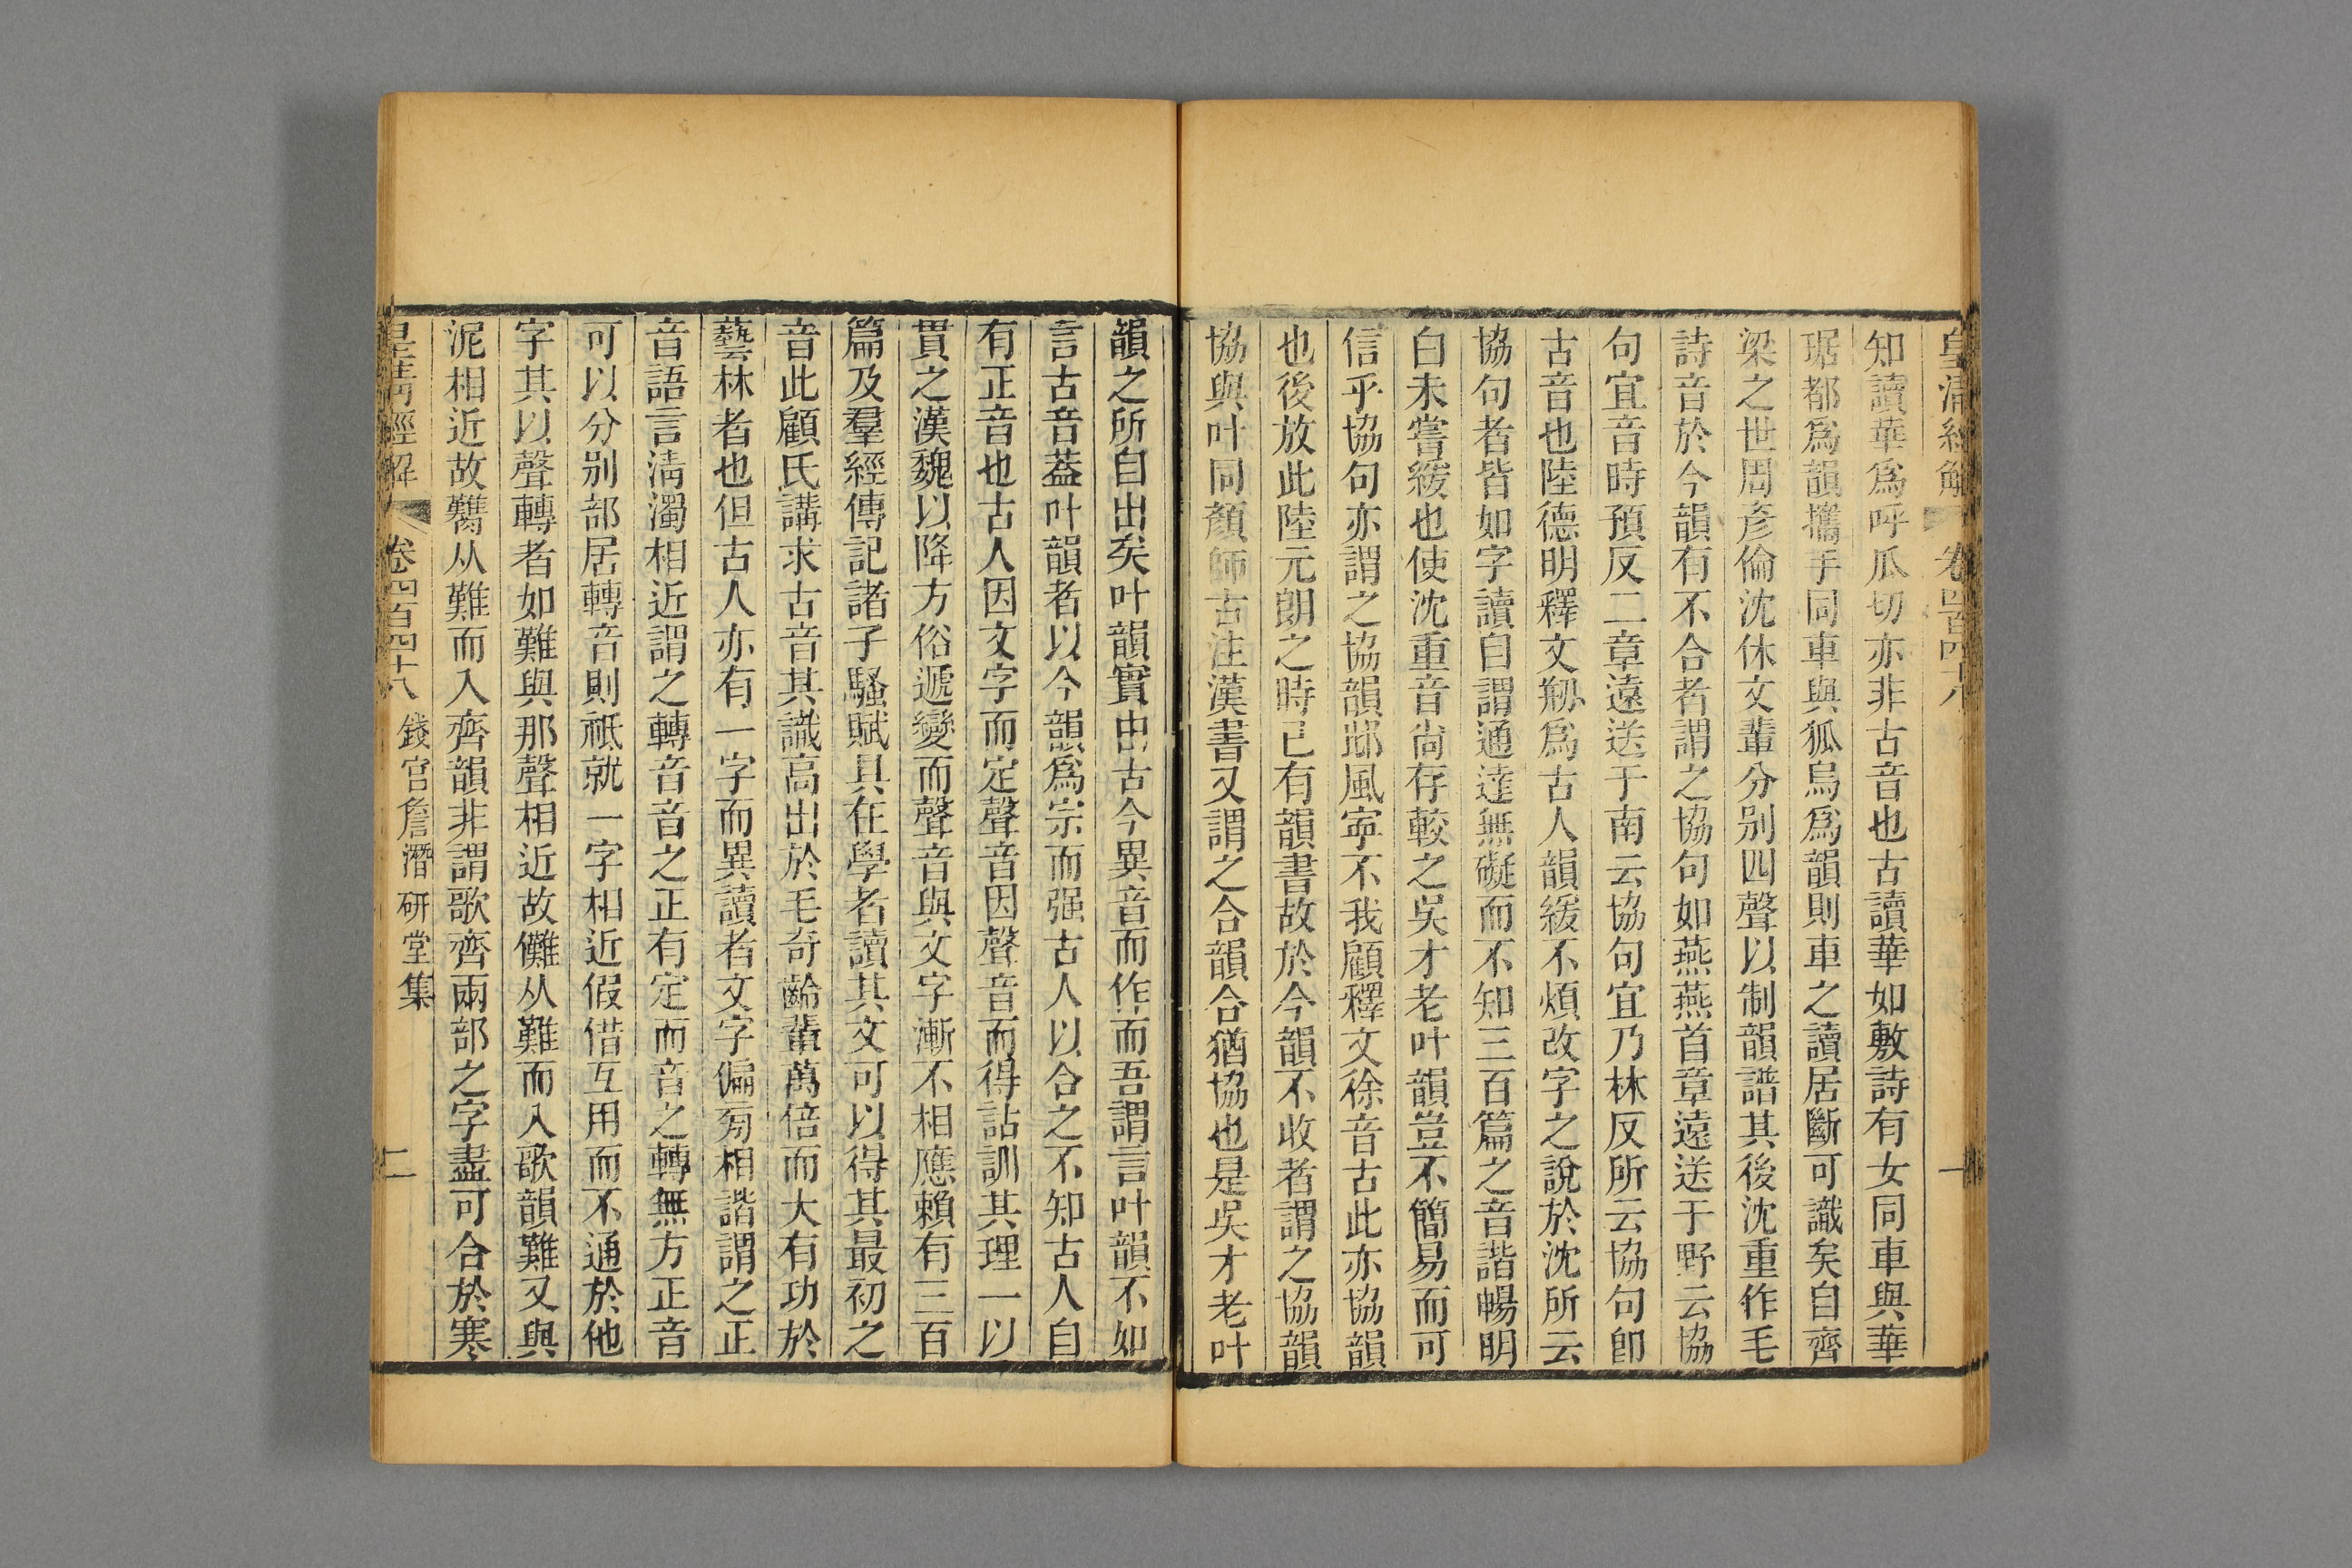 皇清經解 卷四百四十八 一
知讀華爲呼瓜切亦非古音也古讀華如敷詩有女同車與華
琚都爲韻攜手同車與狐烏爲韻則車之讀居斷可識矣自齊
梁之世周彥倫沈休文輩分别四聲以制韻譜其後沈重作毛
詩音於今韻有不合者謂之協句如燕燕首章遠送于野云協
句宜音時預反二章遠送于南云協句宜乃林反所云協句卽
古音也陸德明釋文刱爲古人韻緩不煩改字之說於沈所云
協句者皆如字讀自謂通達無礙而不知三百篇之音諧暢明
白未嘗緩也使沈重音尚存較之吳才老叶韻豈不簡易而可
信乎協句亦謂之協韻邶風寍不我顧釋文徐音古此亦協韻
也後放此陸元朗之時已有韻書故於今韻不收者謂之協韻
協與叶同顏師古注漢書又謂之合韻合猶協也是吳才老叶
韻之所自出矣叶韻實由古今異音而作而吾謂言叶韻不如
言古音葢叶韻者以今韻爲宗而强古人以合之不知古人自
有正音也古人因文字而定聲音因聲音而得詁訓其理一以
貫之漢魏以降方俗遞變而聲音與文字漸不相應賴有三百
篇及羣經傳記諸子騷賦具在學者讀其文可以得其最初之
音此顧氏講求古音其識高出於毛奇齡輩萬倍而大有功於
藝林者也但古人亦有一字而異讀者文字偏㫄相諧謂之正
音語言淸濁相近謂之轉音音之正有定而音之轉無方正音
可以分别部居轉音則祇就一字相近假借互用而不通於他
字其以聲轉者如難與那聲相近故儺从難而入歌韻難又與
泥相近故臡从難而入齊韻非謂歌齊兩部之字盡可合於寒
皇清經解 卷四百四十八 錢官詹潛研堂集 二